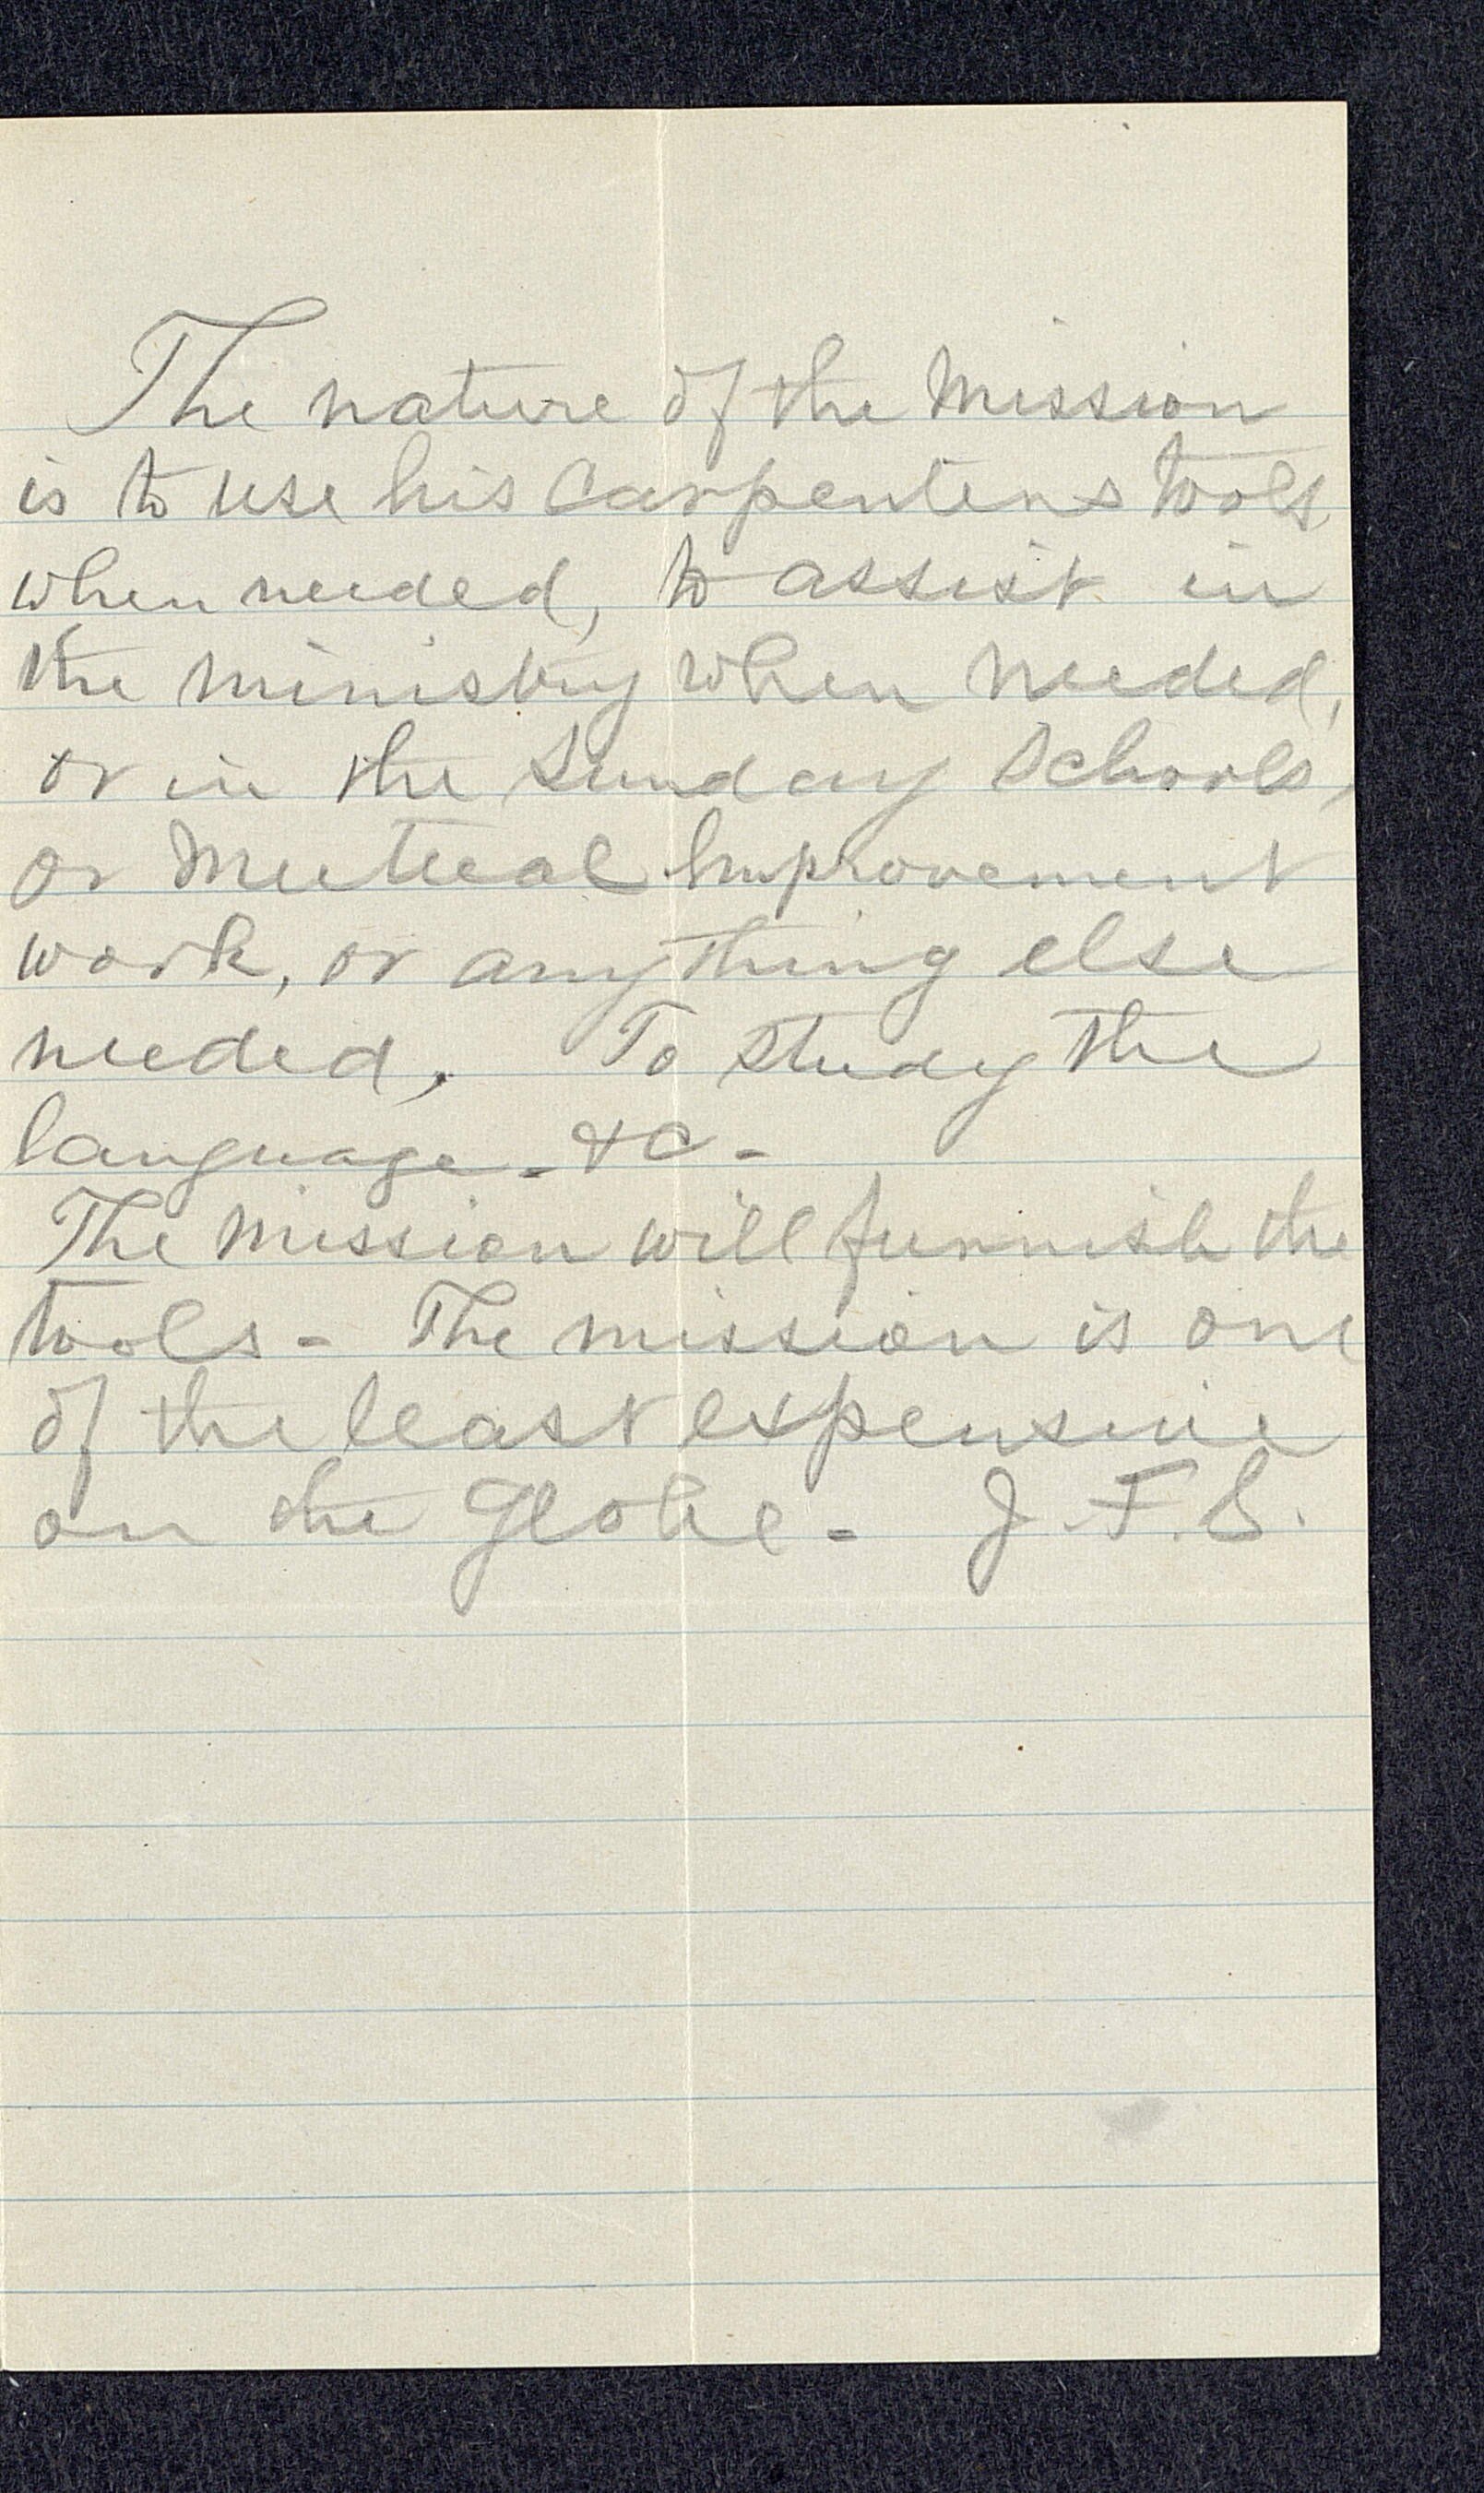 The nature of the Mission
is to use his Carpenters tools
when needed, to assist in
the ministry when needed,
or in the Sunday Schools,
or Mutual Improvement
work, or any thing else
needed. To study the
language - &c -
The Mission will furnish the
tools - The mission is one
of the least expensive
on the Globe - J. F. S.